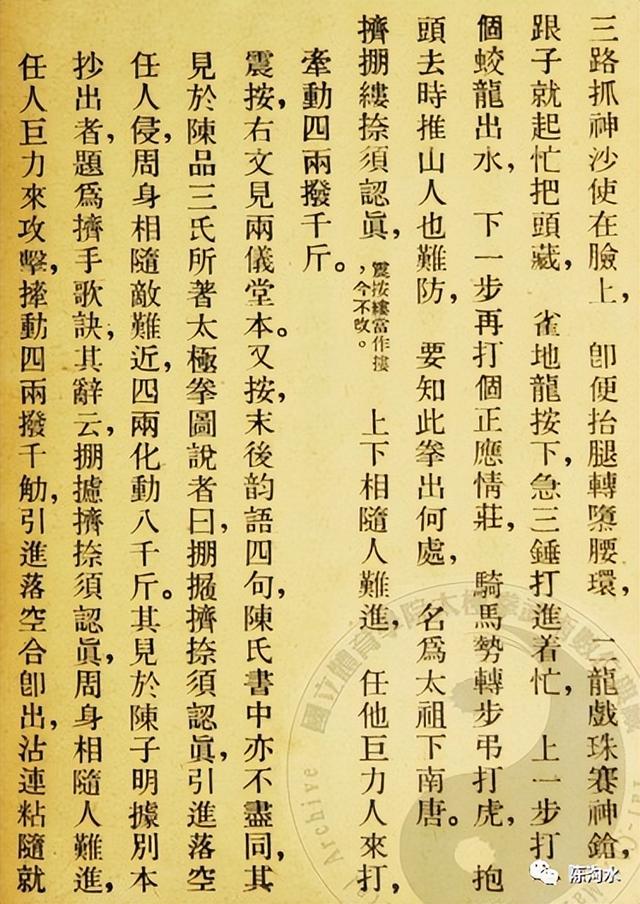 三路抓神沙使在臉上，卽便抬腿轉墮腰環，二龍戲珠賽神鎗，
跟子就起忙把頭藏，雀地龍按下，急三錘打進着忙，上一步打
個蛟龍出水，下一步再打個正應情莊，騎馬勢轉步弔打虎，抱
頭去時推山人也難防，要知此拳出何處，名爲太祖下南唐。
擠掤縷捺須認眞，震按縷當作摟，今不改。上下相隨人難進，任他巨力人來打，
牽動四兩撥千斤。
震按，右文見兩儀堂本。又按，末後韵語四句，陳氏書中亦不盡同，其
見於陳品三氏所著太極拳圖說者曰，掤擠捺須認眞，引進落空
任人侵，周身相隨敵難近，四兩化動八千斤。其見於陳子明據別本
抄出者，題爲擠手歌訣，其辭云，掤擠捺須認眞，周身相隨人難進，
任人巨力來攻擊，動四兩撥千觔，引進落空合卽出，沾連粘隨就
國立體育學院太極拳
Archive
陈沟水